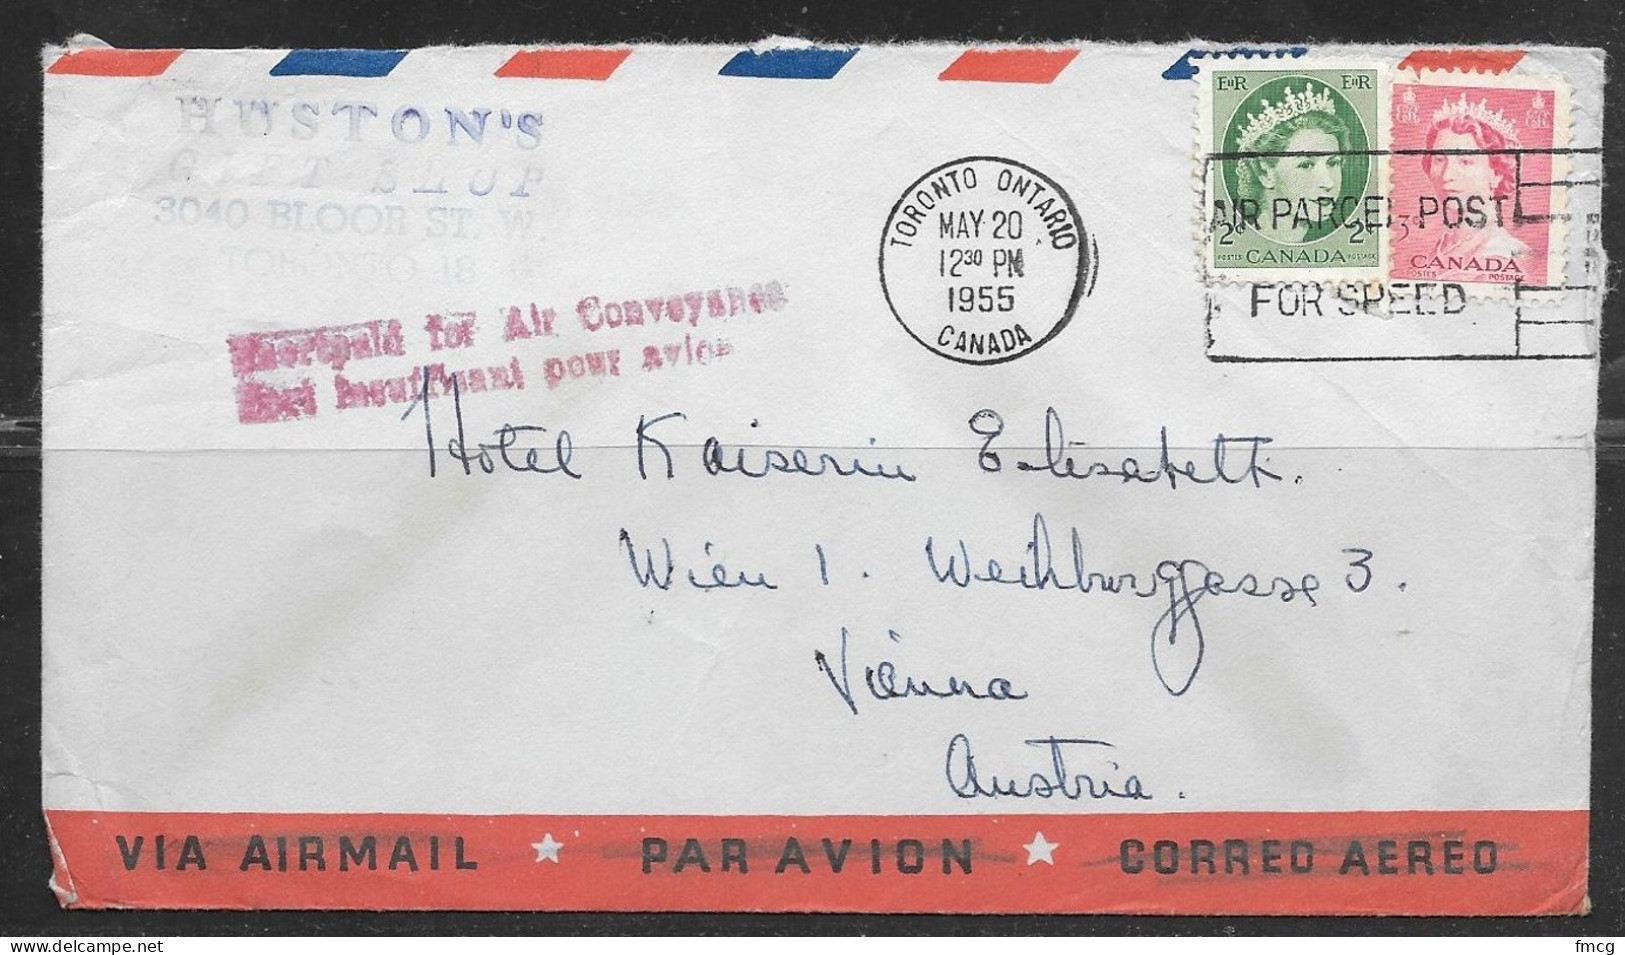 HUSTON'S
GIFT SHOP
3040 BLOOR ST. W.
TORONTO 18
Shortpaid for Air Conveyance
Insuffisant pour avion
TORONTO ONTARIO
MAY 20
12 30 PM
1955
CANADA
EIIR EIIR
2¢ 2¢
POSTES CANADA POSTAGE
EIIR EIIR
3¢
CANADA
POSTES POSTAGE
AIR PARCEL POST
FOR SPEED
Hotel Kaiserin Elisabeth.
Wien 1. Weihburggasse 3.
Vienna
Austria.
VIA AIRMAIL ★ PAR AVION ★ CORREO AEREO
fmcg